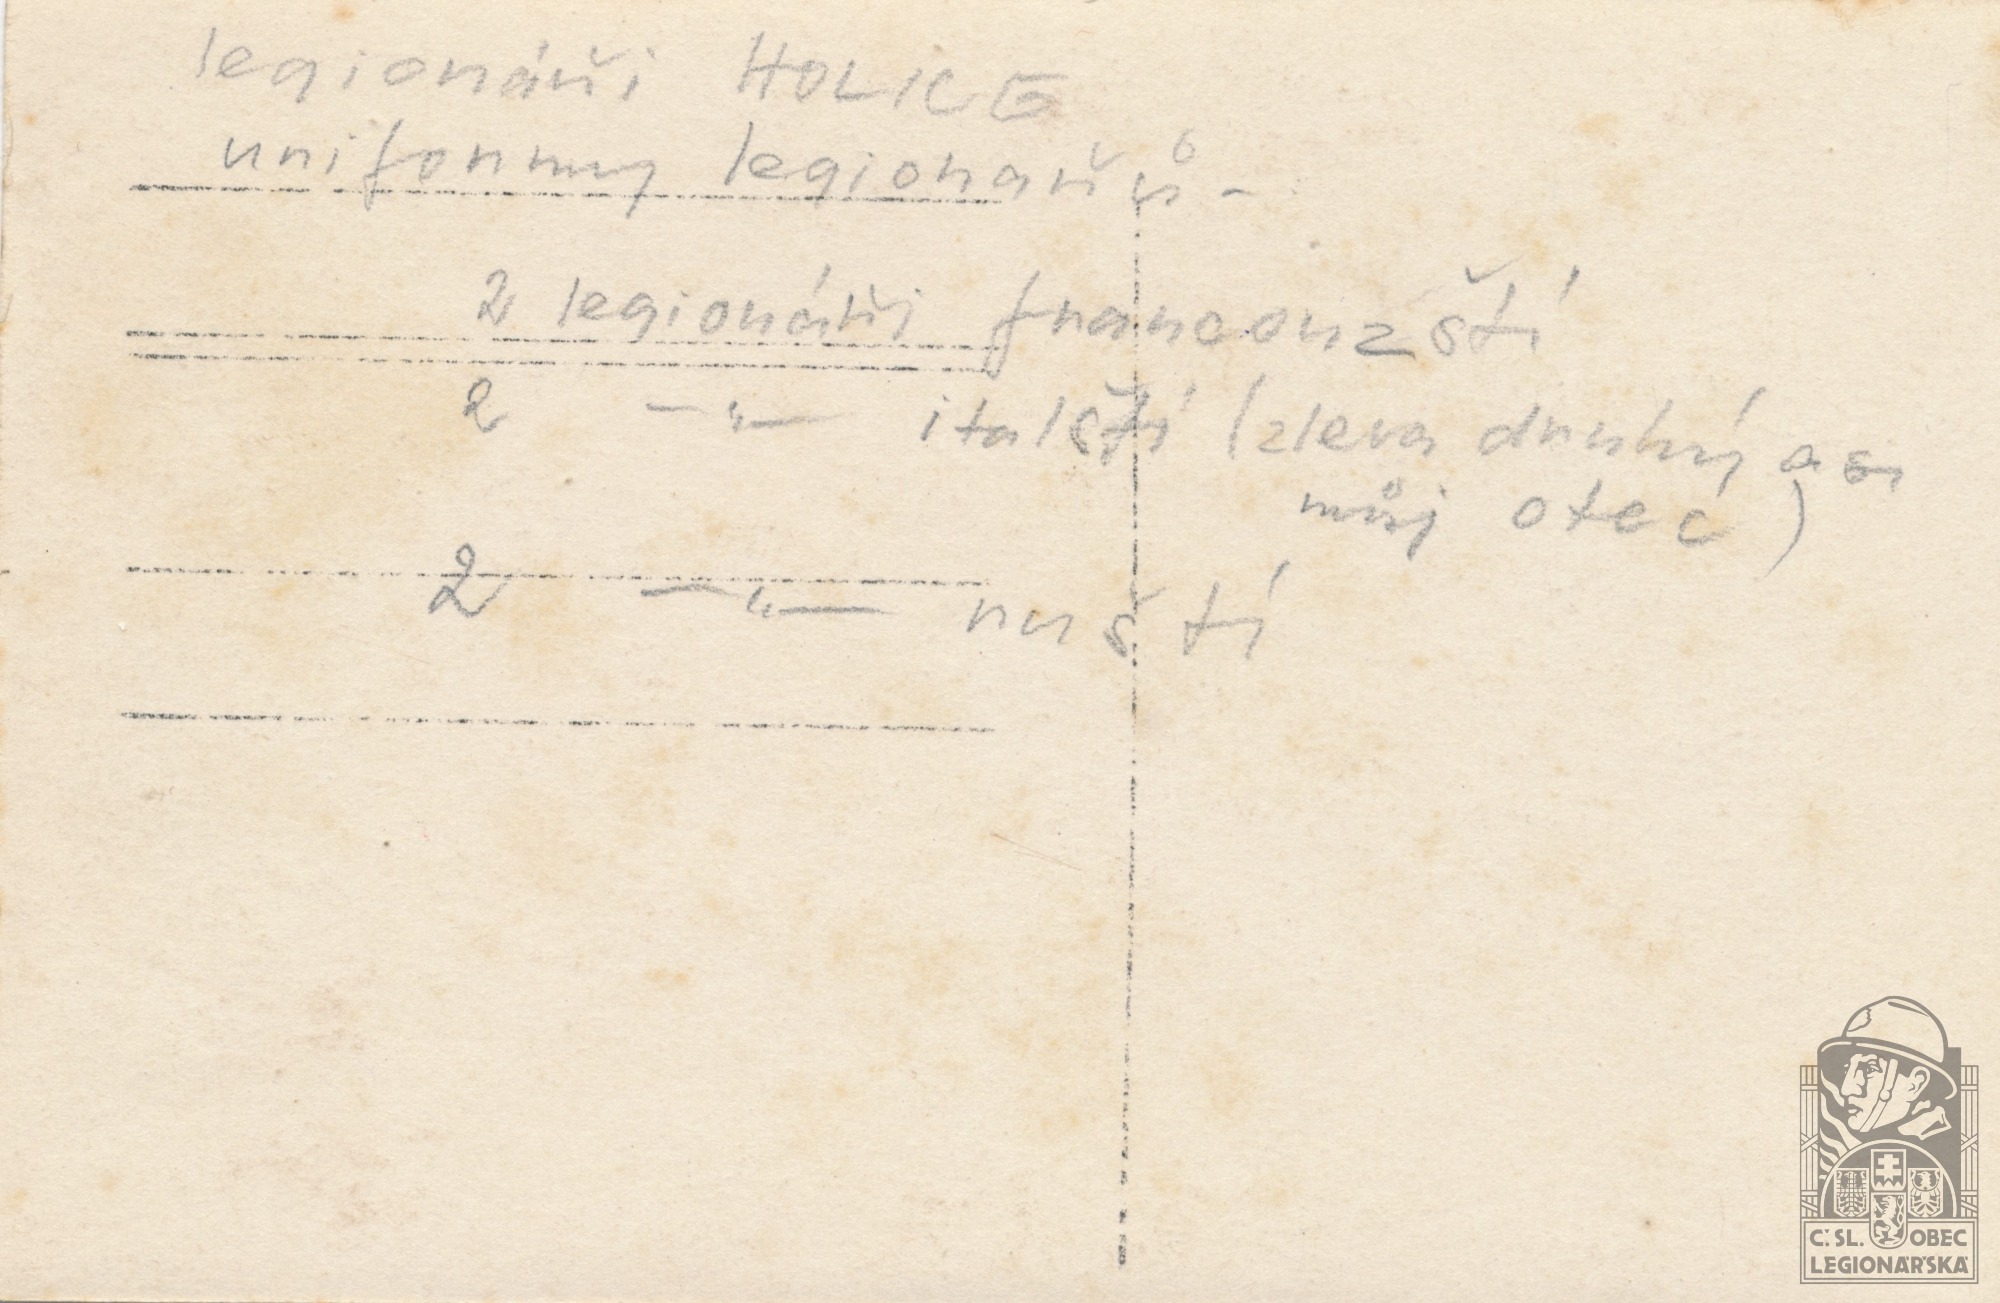 legionáři HOLICE
uniformy legionářů -
2 legionáři francouzští
2 —"— italští (zleva druhý asi
můj otec)
2 —"— ruští
Č.SL. OBEC
LEGIONÁŘSKÁ